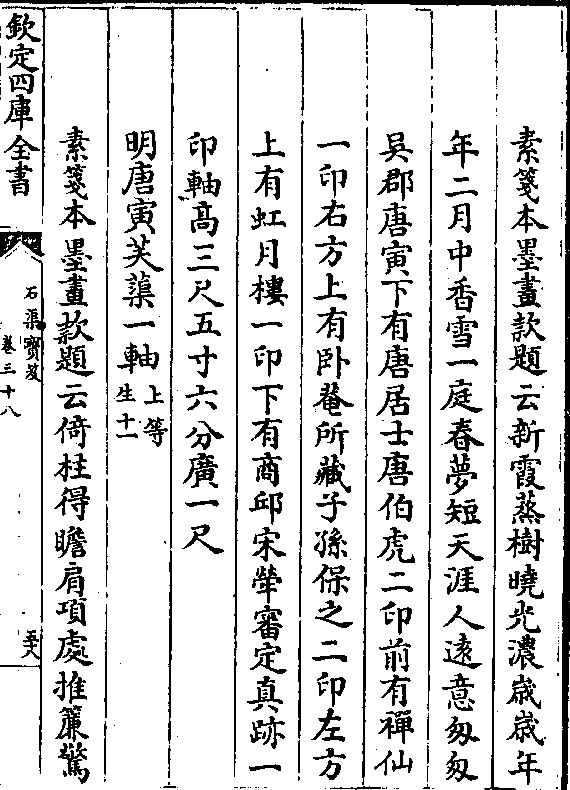 素箋本墨畫款題云新霞蒸樹曉光濃歳歳年
年二月中香雪一庭春夢短天涯人遠意匆匆
吳郡唐寅下有唐居士唐伯虎二印前有禪仙
一印右方上有卧菴所藏子孫保之二印左方
上有虹月樓一印下有商邱宋犖審定真跡一
印軸髙三尺五寸六分廣一尺
明唐寅芙蕖一軸 上等
生十一
素箋本墨畫款題云倚柱得瞻肩項處推簾驚
欽定四庫全書
石渠寳笈
卷三十八